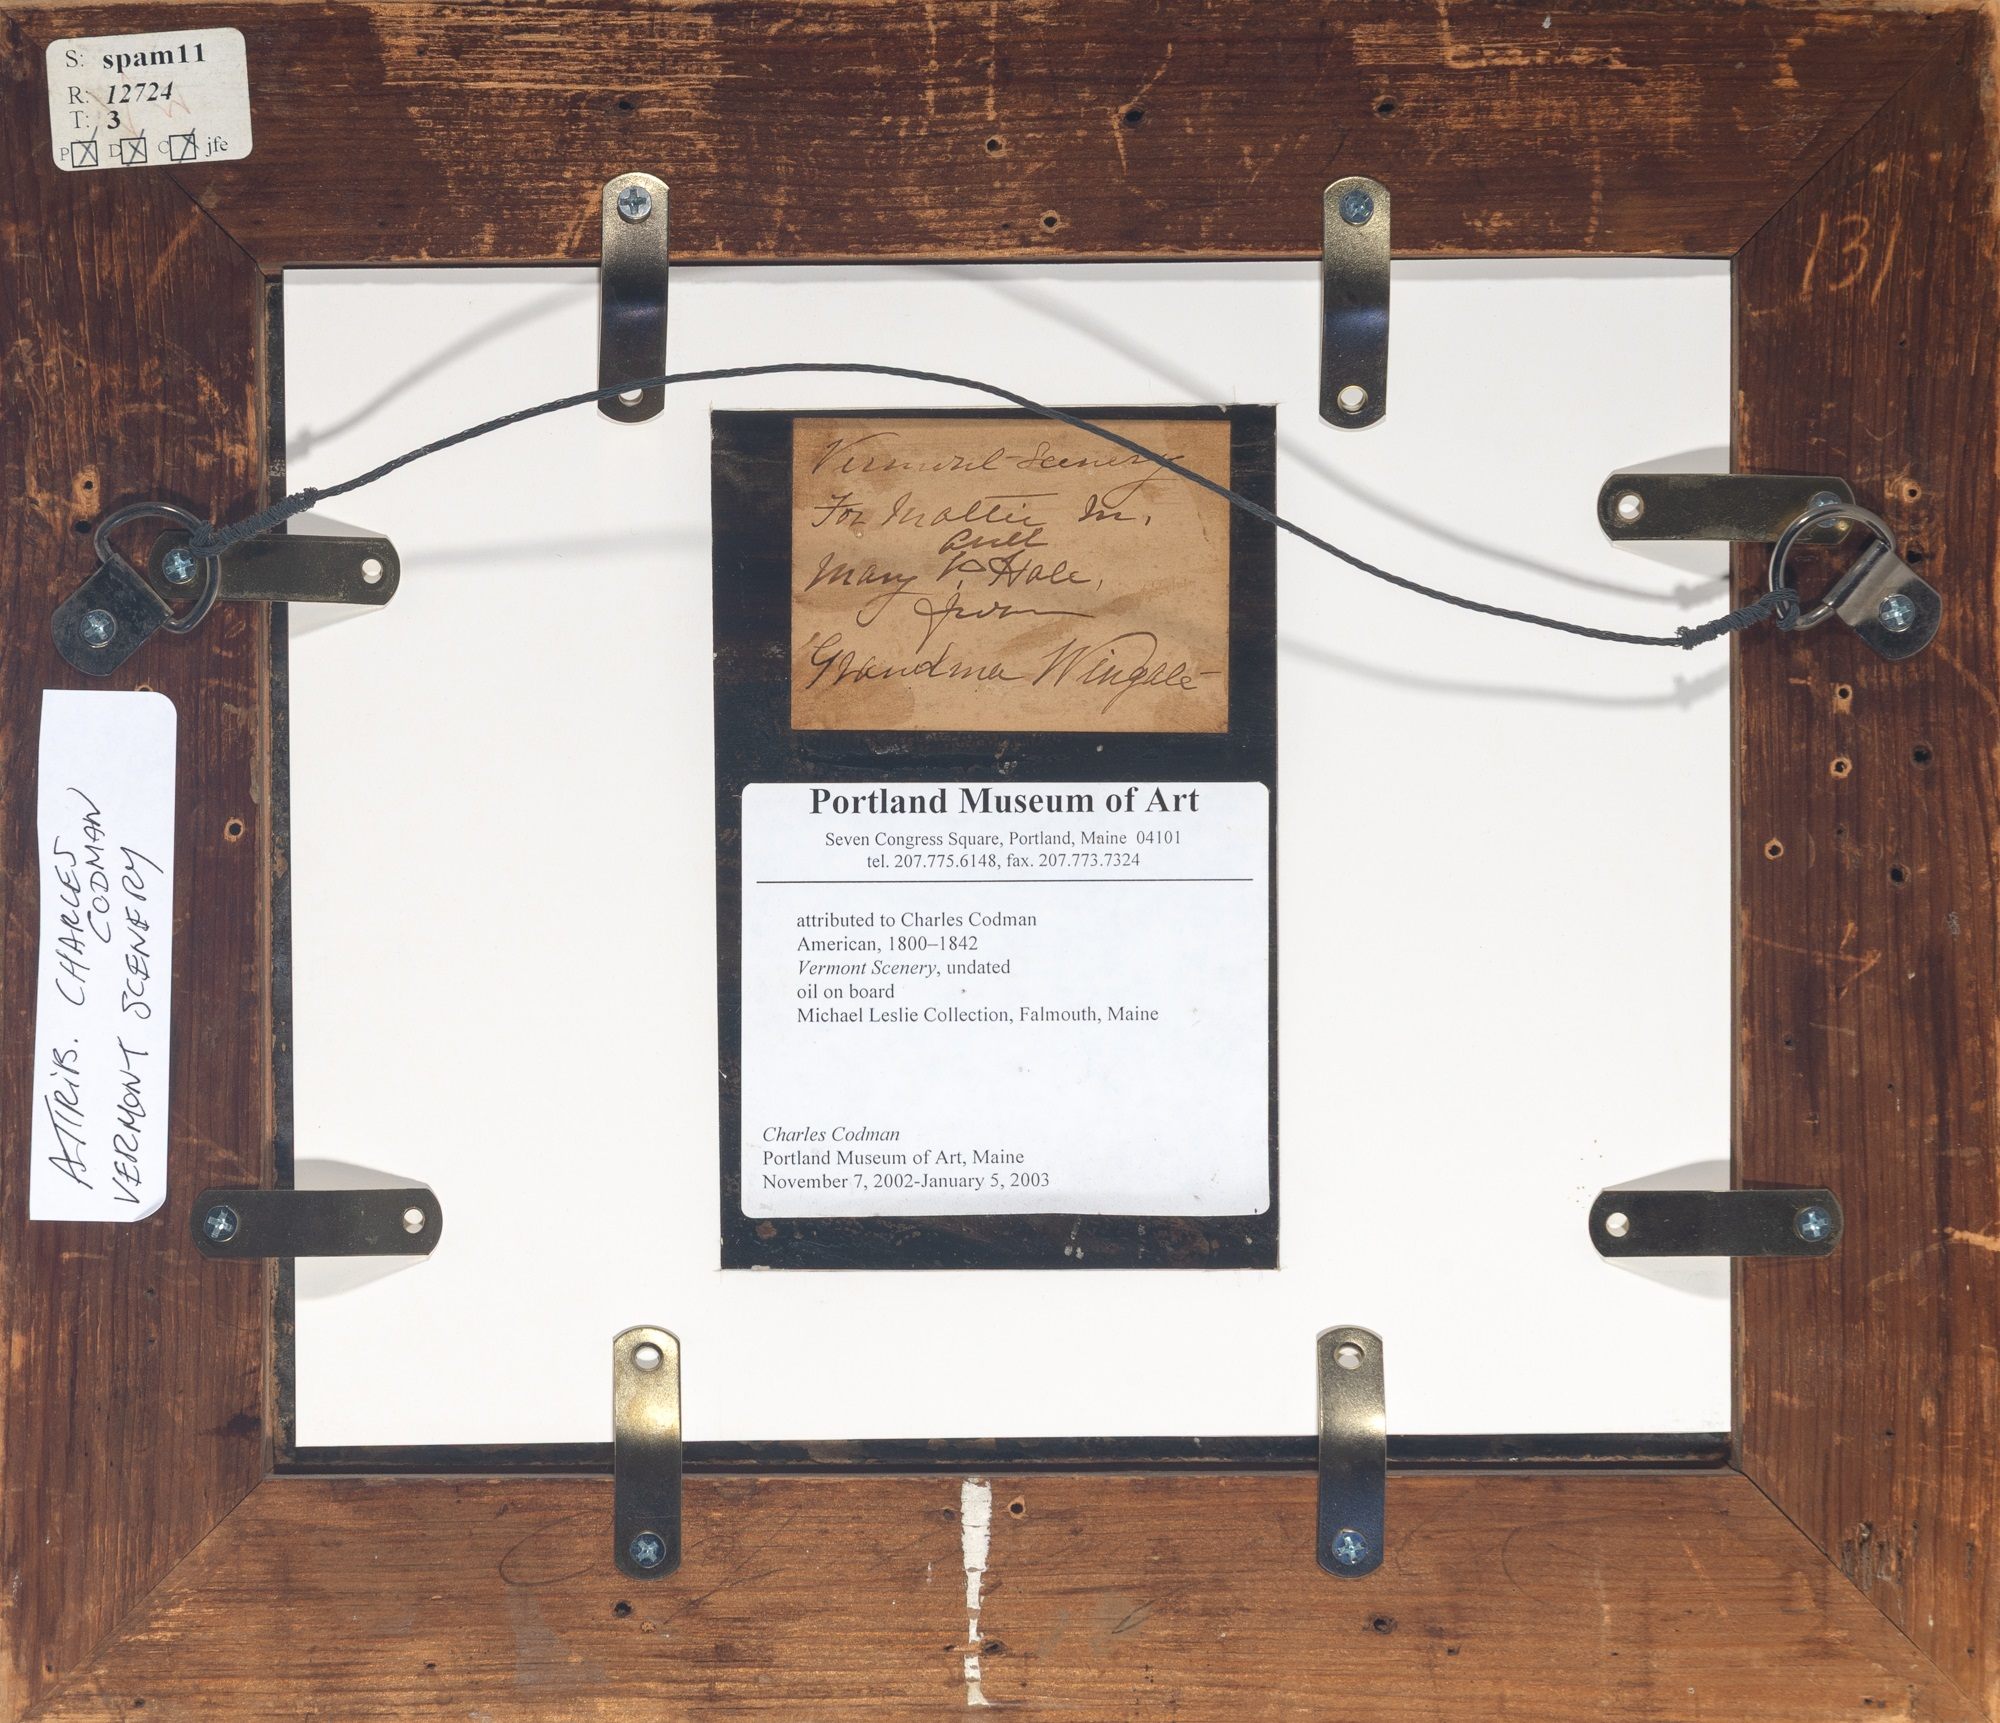 S: spam11
R: 12724
T: 3
P D C jfe
131
Vermont Scenery
For Mattie M.
and
Mary P. Hale,
from
Grandma Wingate
Portland Museum of Art
Seven Congress Square, Portland, Maine 04101
tel. 207.775.6148, fax. 207.773.7324
attributed to Charles Codman
American, 1800–1842
Vermont Scenery, undated
oil on board
Michael Leslie Collection, Falmouth, Maine
Charles Codman
Portland Museum of Art, Maine
November 7, 2002-January 5, 2003
ATTRIB. CHARLES
CODMAN
VERMONT SCENERY